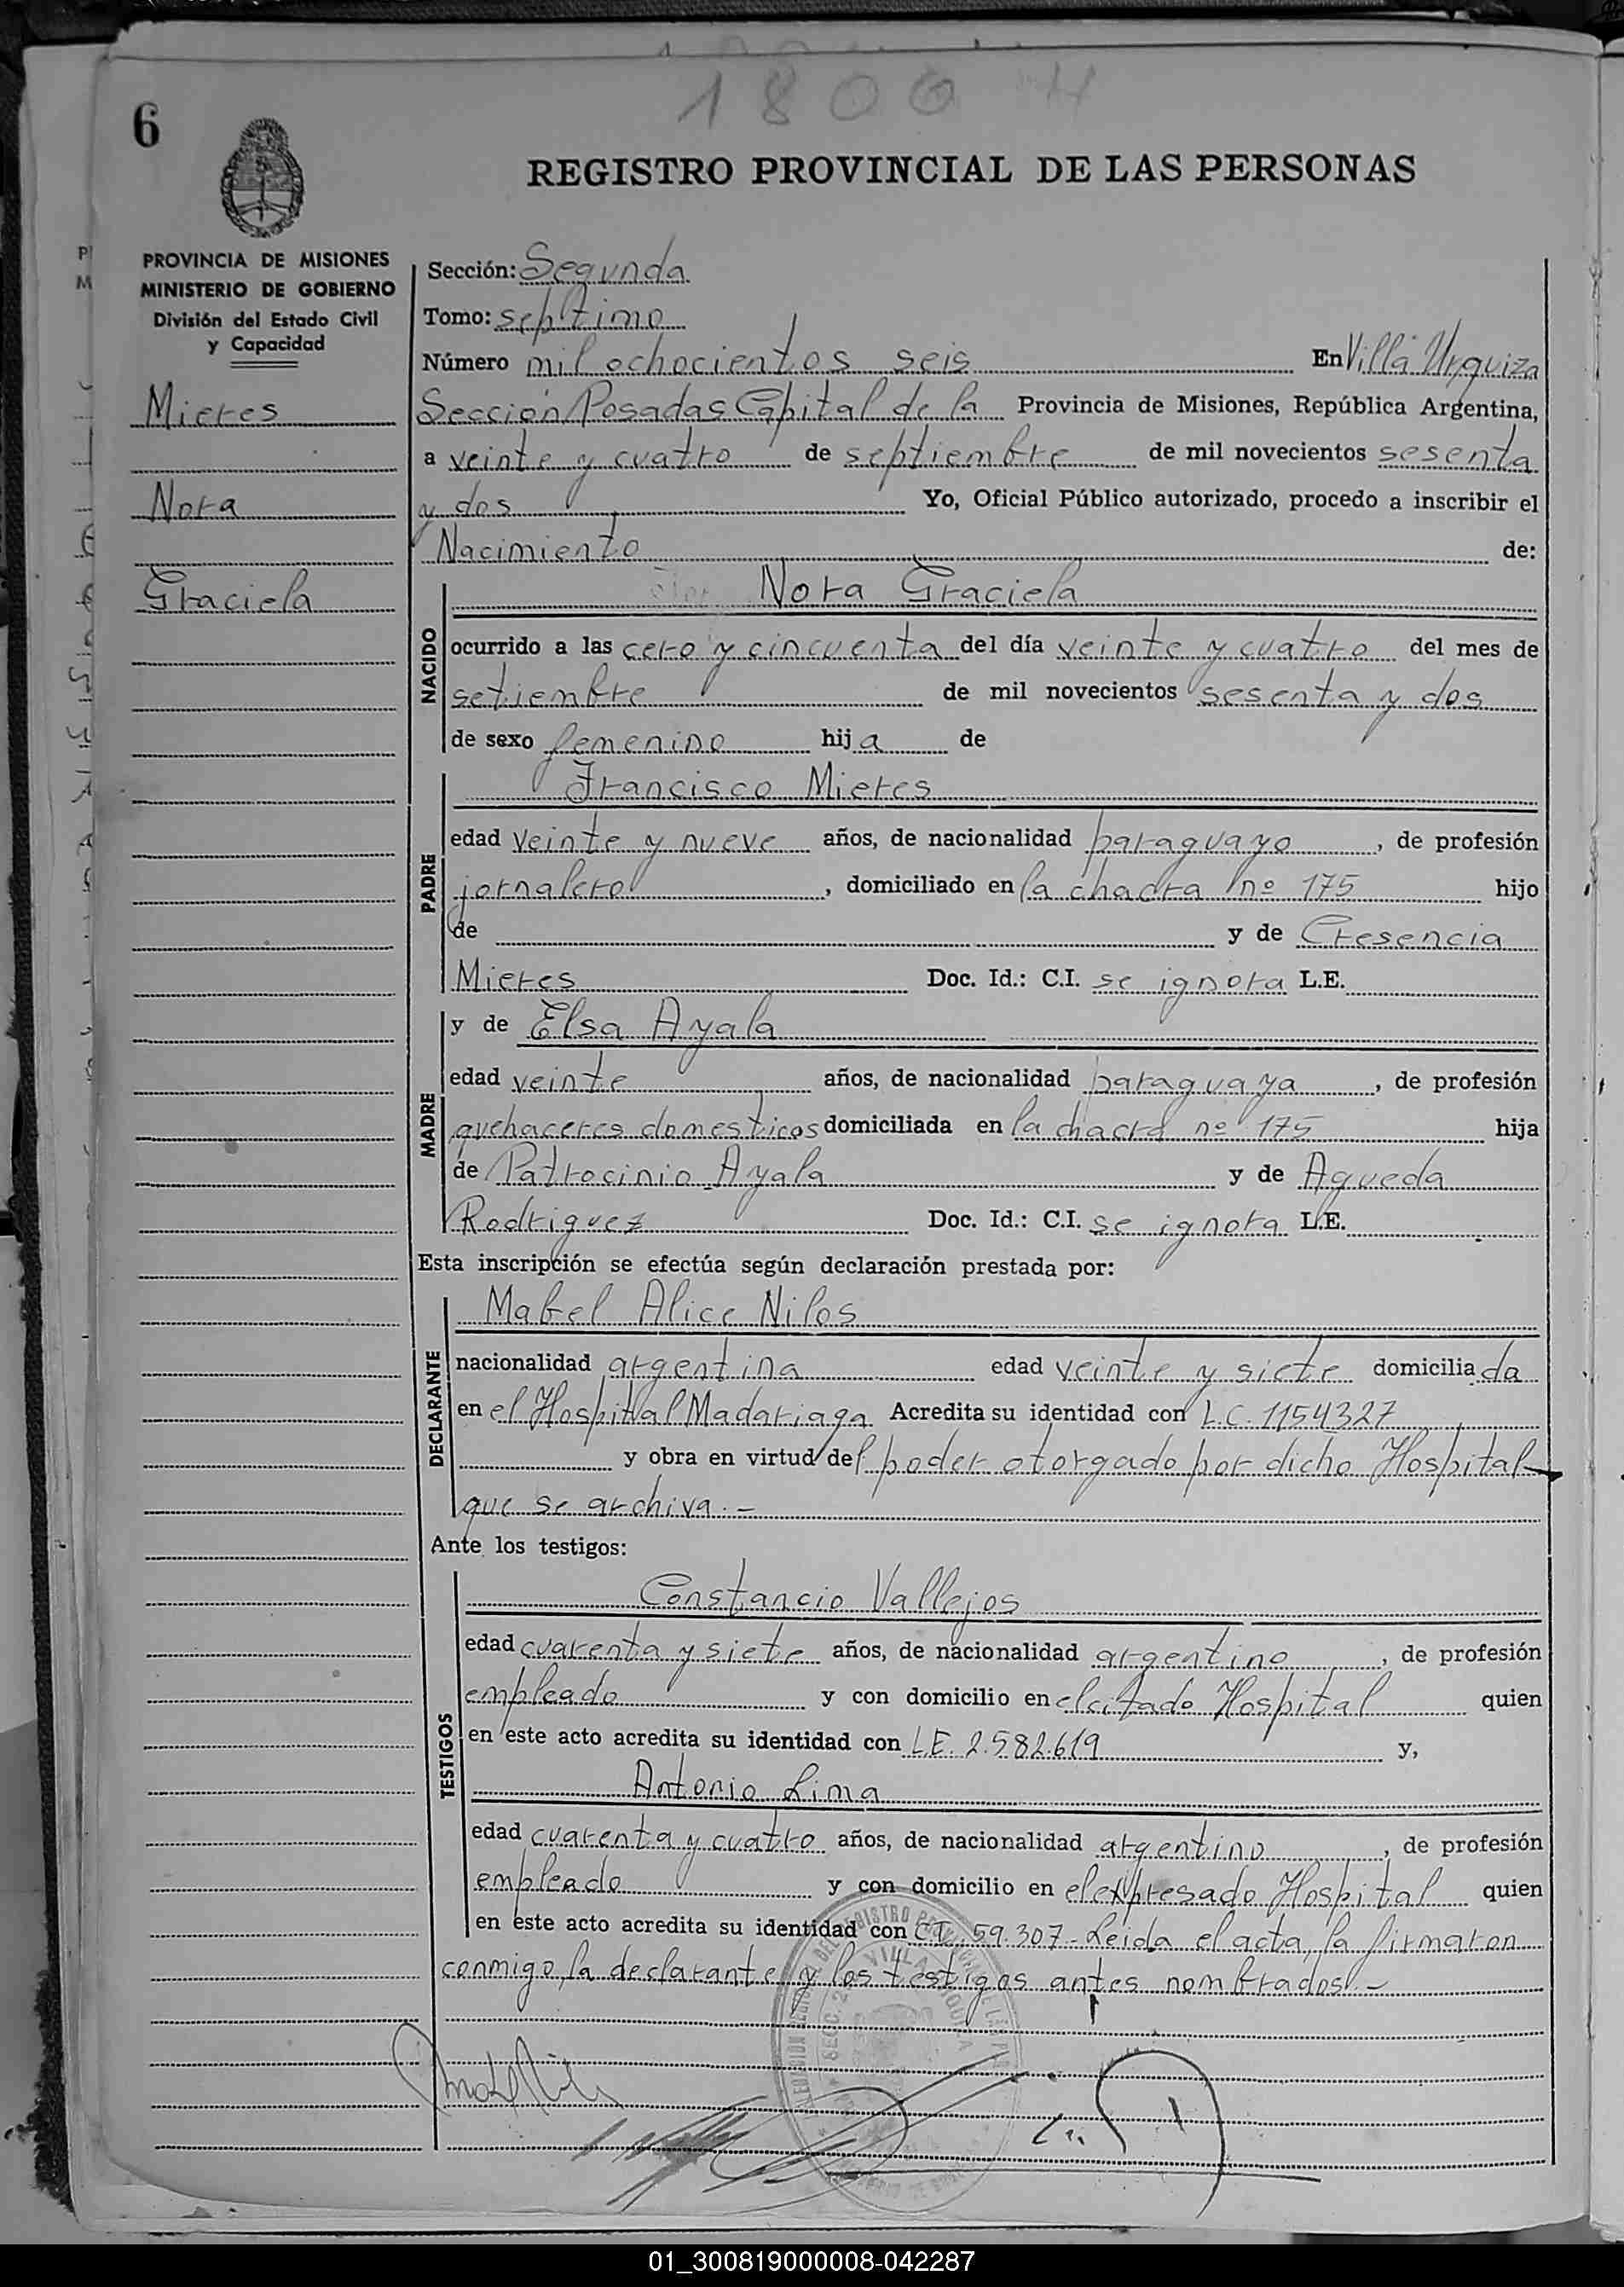 1806 H
6
REGISTRO PROVINCIAL DE LAS PERSONAS
PROVINCIA DE MISIONES
MINISTERIO DE GOBIERNO
División del Estado Civil
y Capacidad
Mieres
Nora
Graciela
Sección: Segunda
Tomo: septimo
Número mil ochocientos seis En Villa Urquiza
Sección Posadas Capital de la Provincia de Misiones, República Argentina,
a veinte y cuatro de septiembre de mil novecientos sesenta
y dos Yo, Oficial Público autorizado, procedo a inscribir el
Nacimiento de:
NACIDO
Nora Graciela
ocurrido a las cero y cincuenta del día veinte y cuatro del mes de
setiembre de mil novecientos sesenta y dos
de sexo femenino hija de
PADRE
Francisco Mieres
edad veinte y nueve años, de nacionalidad paraguayo, de profesión
jornalero, domiciliado en la chacra nº 175 hijo
de y de Cresencia
Mieres Doc. Id.: C.I. se ignora L.E.
MADRE
y de Elsa Ayala
edad veinte años, de nacionalidad paraguaya, de profesión
quehaceres domesticos domiciliada en la chacra nº 175 hija
de Patrocinio Ayala y de Agueda
Rodriguez Doc. Id.: C.I. se ignora L.E.
Esta inscripción se efectúa según declaración prestada por:
DECLARANTE
Mabel Alice Nilos
nacionalidad argentina edad veinte y siete domiciliada
en el Hospital Madariaga Acredita su identidad con L.C. 1154327
y obra en virtud del poder otorgado por dicho Hospital
que se archiva.-
Ante los testigos:
TESTIGOS
Constancio Vallejos
edad cuarenta y siete años, de nacionalidad argentino, de profesión
empleado y con domicilio en el citado Hospital quien
en este acto acredita su identidad con L.E. 2.582.619 y,
Antonio Lima
edad cuarenta y cuatro años, de nacionalidad argentino, de profesión
empleado y con domicilio en el expresado Hospital quien
en este acto acredita su identidad con C.I. 59.307- Leida el acta, la firmaron
conmigo, la declarante y los testigos antes nombrados.-
01_300819000008-042287